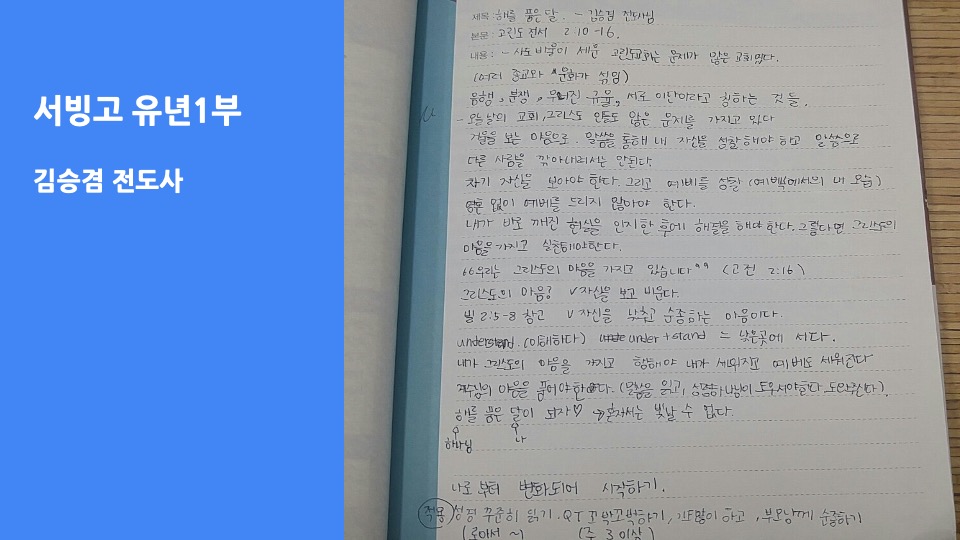 서빙고 유년1부
김승겸 전도사
제목 : 해를 품은 달. - 김승겸 전도사님
본문 : 고린도전서 2:10-16.
내용 : - 사도바울이 세운 고린도교회는 문제가 많은 교회였다.
(여러 종교와 문화가 섞임)
음행, 분쟁, 무너진 규율, 서로 이단이라고 칭하는 것 등.
- 오늘날의 교회, 그리스도인들도 많은 문제를 가지고 있다
거울을 보는 마음으로. 말씀을 통해 내 자신을 성찰해야 하고 말씀으로
다른 사람을 깎아내려서는 안된다.
자기 자신을 보아야 한다. 그리고 예배를 성찰 (예배에서의 내 모습)
영혼 없이 예배를 드리지 않아야 한다.
내가 바로 깨진 현실을 인지한 후에 해결을 해야 한다. 그렇다면 그리스도의
마음을 가지고 실천해야한다.
“우리는 그리스도의 마음을 가지고 있습니다” (고전 2:16)
그리스도의 마음? V자신을 보고 비운다.
빌 2:5-8 참고 V자신을 낮추고 순종하는 마음이다.
understand. (이해하다) under + stand = 낮은곳에 서다.
내가 그리스도의 마음을 가지고 향해야 내가 세워지고 예배도 세워진다
예수님의 마음을 품어야 한다. (말씀을 읽고, 성령하나님이 도우셔야한다.
해를 품은 달이 되자♡ → 혼자서는 빛날 수 없다.
하나님 나
나로부터 변화되어 시작하기.
적용 성경 꾸준히 읽기. QT 꼬박꼬박하기, 기도많이 하고, 부모님께 순종하기
(로마서 ~) (주 3 이상)